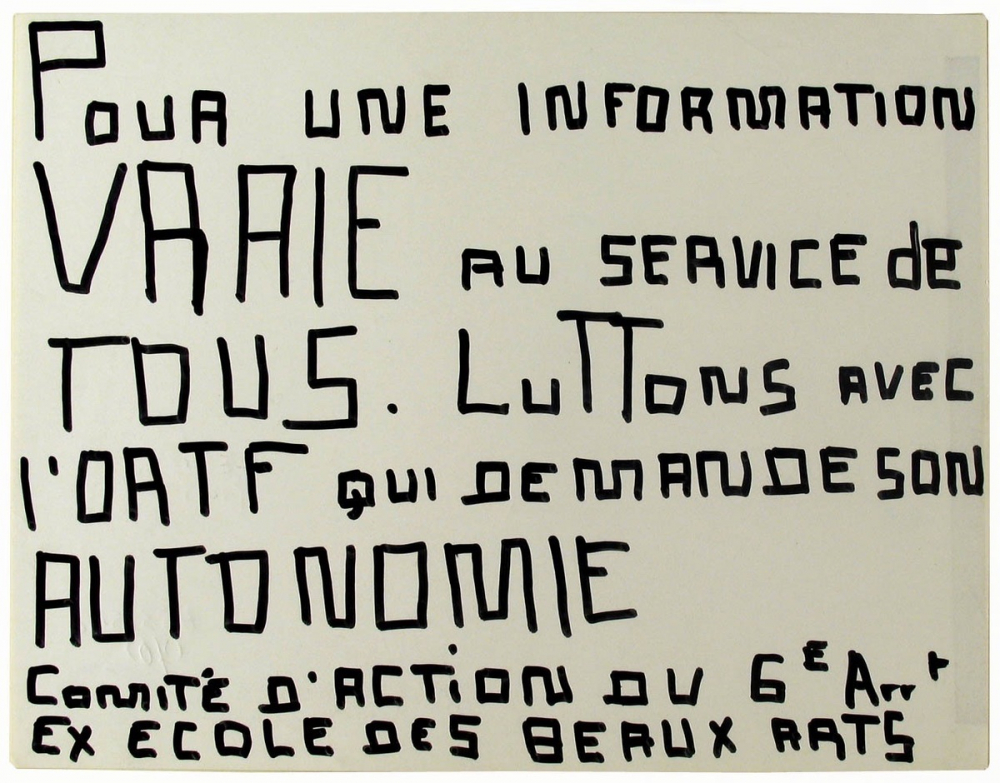 POUR UNE INFORMATION
VRAIE AU SERVICE de
TOUS. LuTTons AVEC
l'ORTF QUI DEMANDE SON
AUTONOMIE
COMITÉ D'ACTiON DU 6E Arrt
EX ECOLE DES BEAUX ARTS